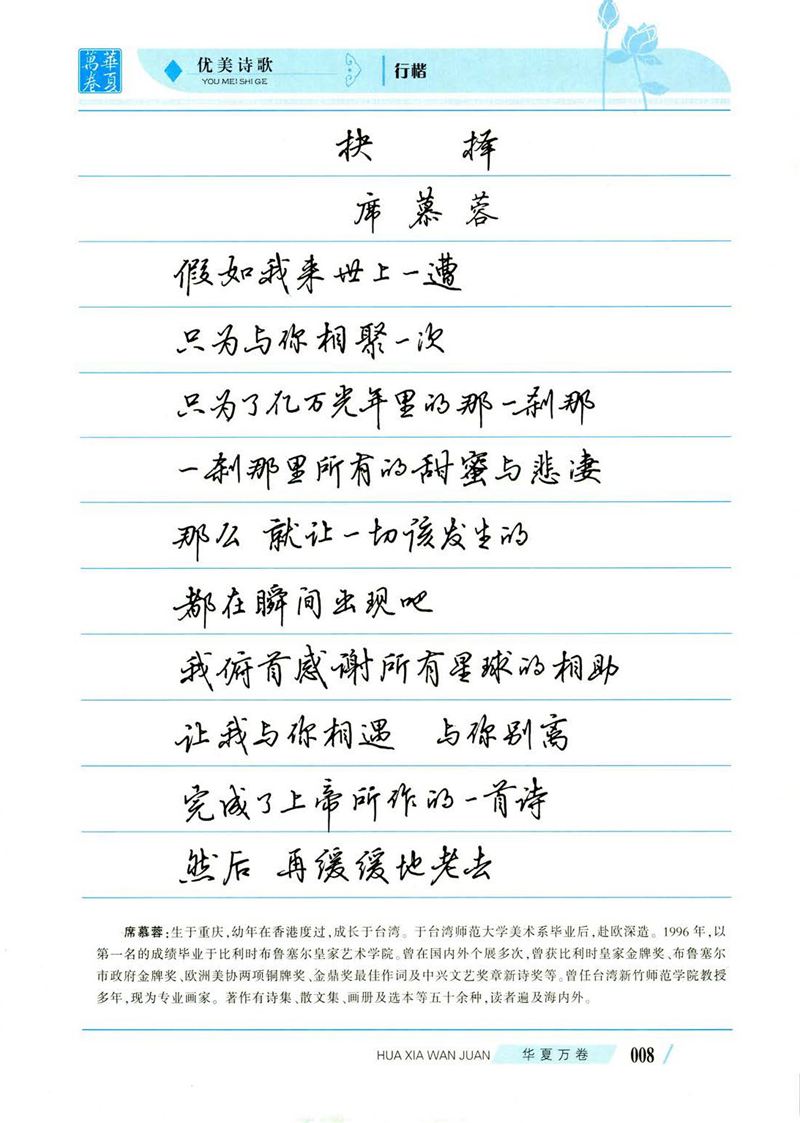 華夏萬卷
优美诗歌
YOU MEI SHI GE
行楷
抉 择
席 慕 蓉
假如我来世上一遭
只为与你相聚一次
只为了亿万光年里的那一刹那
一刹那里所有的甜蜜与悲凄
那么 就让一切该发生的
都在瞬间出现吧
我俯首感谢所有星球的相助
让我与你相遇 与你别离
完成了上帝所作的一首诗
然后 再缓缓地老去
席慕蓉:生于重庆,幼年在香港度过,成长于台湾。于台湾师范大学美术系毕业后,赴欧深造。1996 年,以
第一名的成绩毕业于比利时布鲁塞尔皇家艺术学院。曾在国内外个展多次,曾获比利时皇家金牌奖、布鲁塞尔
市政府金牌奖、欧洲美协两项铜牌奖、金鼎奖最佳作词及中兴文艺奖章新诗奖等。曾任台湾新竹师范学院教授
多年,现为专业画家。著作有诗集、散文集、画册及选本等五十余种,读者遍及海内外。
HUA XIA WAN JUAN 华夏万卷 008